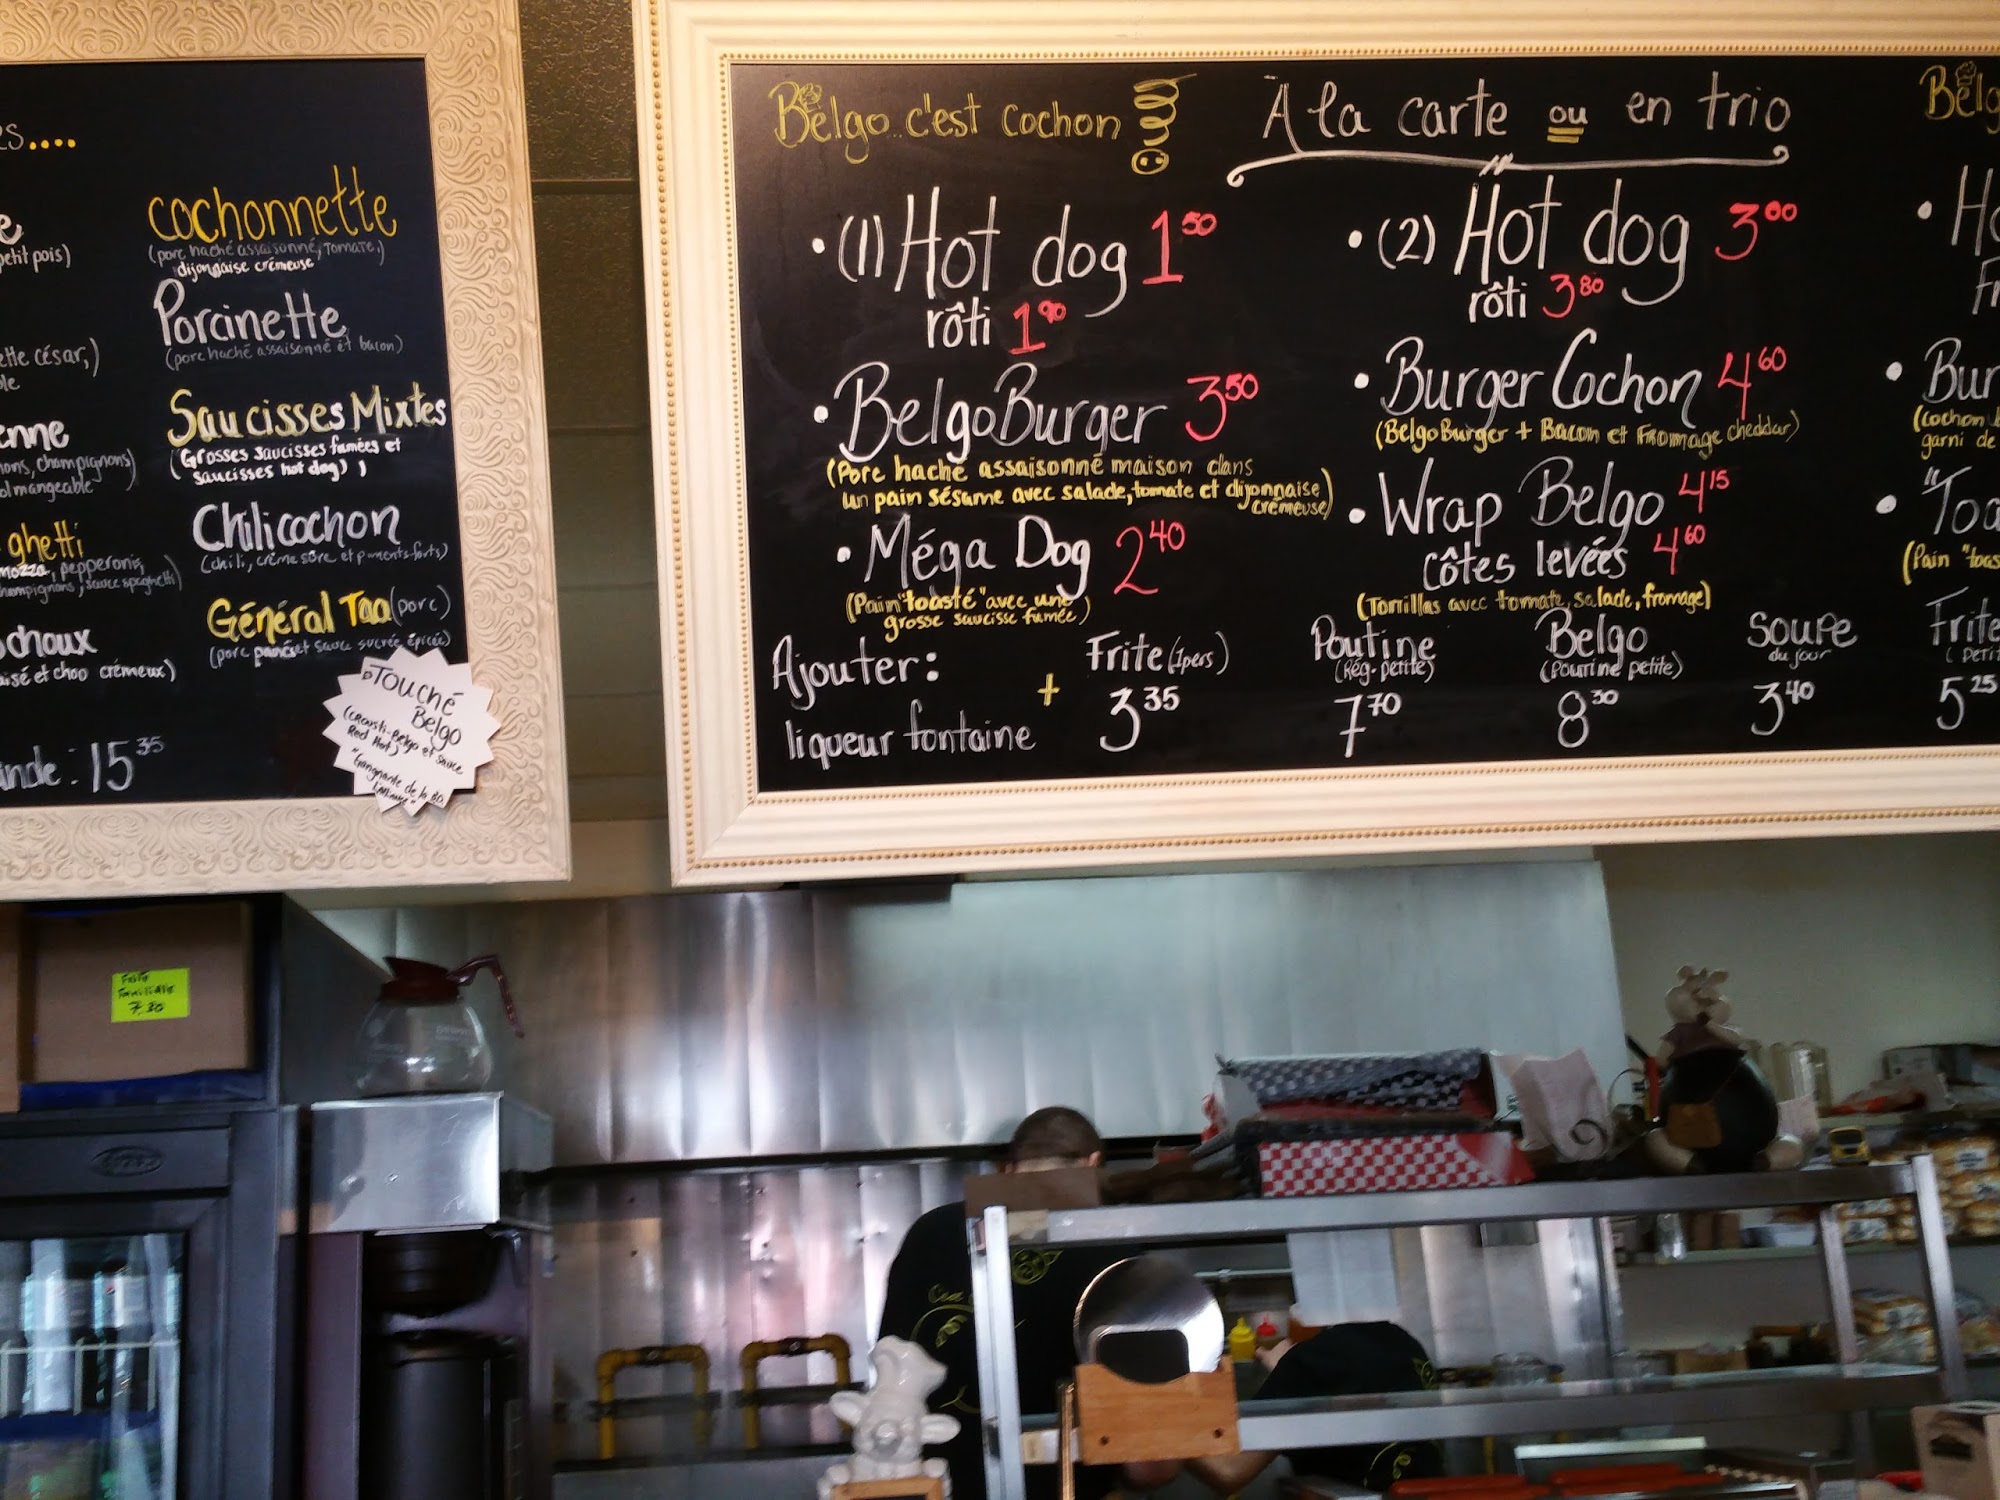 es....
e
petit pois)
ette césar,)
ble
enne
ons, champignons)
ol mangeable
ghetti
mozza, pepperoni,
champignons, sauce spaghetti)
choux
aisé et chou crémeux)
ande : 15 35
cochonnette
(porc haché assaisonné, tomate,)
dijonnaise crémeuse
Porcinette
(porc haché assaisonné et bacon)
Saucisses Mixtes
(Grosses saucisses fumées et
saucisses hot dog)
Chilicochon
(chili, crème sûre et piments forts)
Général Tao (porc)
(porc panés et sauce sucrée épicée)
Touché
Belgo
(Crousti-Belgo et sauce
Red Hot)
"Gangnante de la
Belgo c'est cochon
À la carte ou en trio
• (1) Hot dog 1 50
rôti 1 90
• BelgoBurger 3 50
(Porc haché assaisonné maison dans
un pain sésame avec salade, tomate et dijonnaise
crémeuse)
• Méga Dog 2 40
(Pain "toasté" avec une
grosse saucisse fumée)
• (2) Hot dog 3 00
rôti 3 80
• Burger Cochon 4 60
(BelgoBurger + Bacon et Fromage cheddar)
• Wrap Belgo 4 15
côtes levées 4 60
(Torrillas avec tomate, salade, fromage)
Ajouter:
liqueur fontaine
+
Frite (1pers)
3 35
Poutine
(Rég. petite)
7 70
Belgo
(Poutine petite)
8 30
Soupe
du jour
3 40
Frite
(petit
5 25
Belg
• Ho
Fr
• Bur
(cochon
garni de
• "Toa
(Pain "toas
Frite
Familiale
7,20